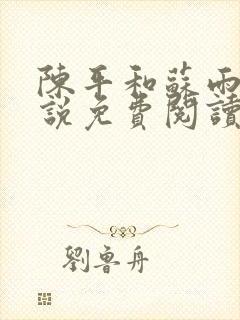 陳平和蘇雨
說免費閱讀
劉魯舟